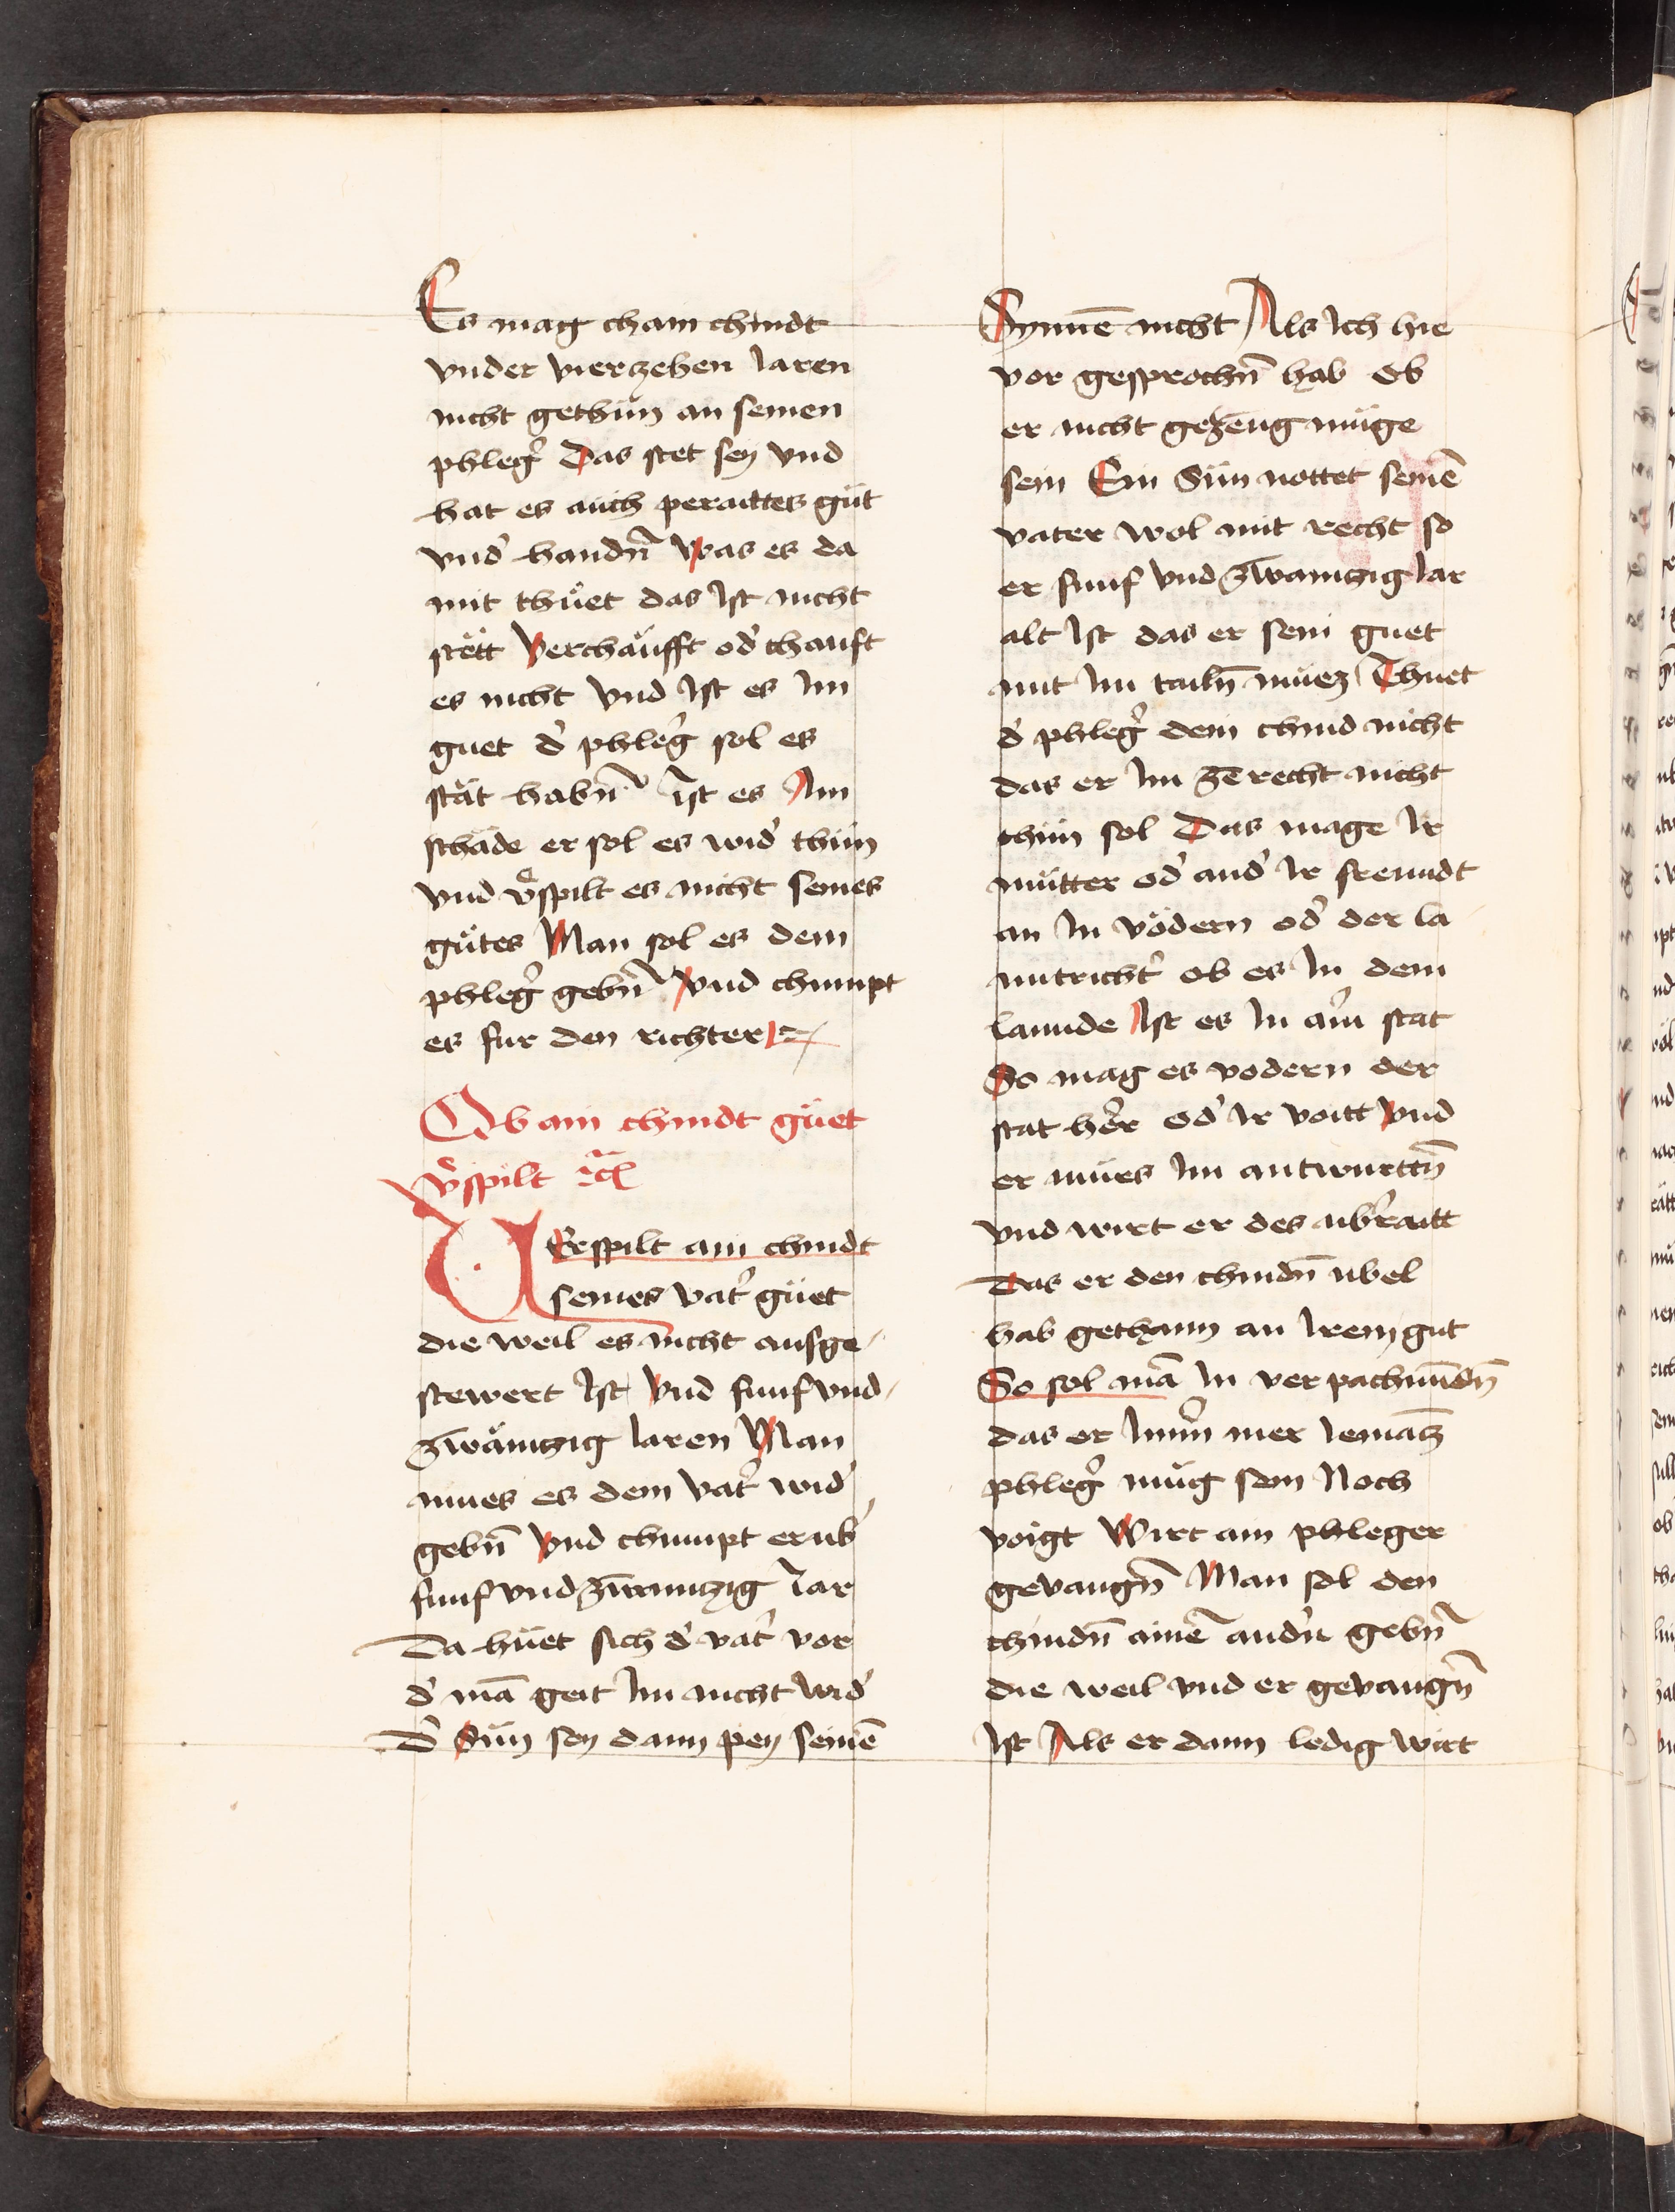 Es mag chain chindt
vnder vierzehen Jaren
nicht gethün an seinen
phleg̉ Das stet sey vnd
hat es auch peraittes güt
vnd̉ handn̄ Was es da
mit thůet das Ist nicht
stëtt Verchaufft od̉ chauft
es nicht vnd Ist es Im
guet d̉ phleg̉ sol es
stät habn̄ Ist es Im
schade er sol es wid̉ thün
vnd v̉spilt es nicht seines
gůtes Man sol es dem
phleg̉ gebn̄ Vnd chumpt
es fur den richter
Ob ain chindt gůet
v̉spilt ꝛc̄
VErspilt ain chindt
seines vat̉ gůet
die weil es nicht ausge
stewert Ist Vnd funf vnd
zwäintzig Jaren Man
mues es dem vat̉ wid̉
gebn̄ Vnd chumpt er ub̉
funf vnd zwaintzig Jar
Da hůet sich d̉ vat̉ vor
d̉ mā geit Im nicht wid̉
D̉ Sün sey dann pey seinē
Synnē nicht Als Ich hie
vor gesprochn̄ hab Ob
er nicht gezeug müge
sein Ein Sün nottet seinē
vater wol mit recht so
er funf vnd zwaintzig Jar
alt Ist das er sein guet
mit Im tailn̄ müez Thuet
d̉ phleg̉ dem chind nicht
das er Im ze recht nicht
thün sol Das mage Ir
můtter od̉ and̉ Ir freundt
an In vödern od̉ der la
nntricht̉ ob es In dem
lannde Ist es In ain̉ stat
So mag es vodern der
stat her̉ od̉ Ir voitt Vnd
er mües Im antwurttn̄
vnd wirt er des ub̉raitt
Das er den chindn̄ ubel
hab gethann an Irem gut
So sol mā In verpachmūdn̄
das er Imm̉ mer Iemācz
phleg̉ müg sein Noch
voigt Wirt ain phleger
gevangn̄ Man sol den
chindn̄ ainē and̉n gebn̄
die weil vnd er gevangn̄
Ist Als er dann ledig wirt